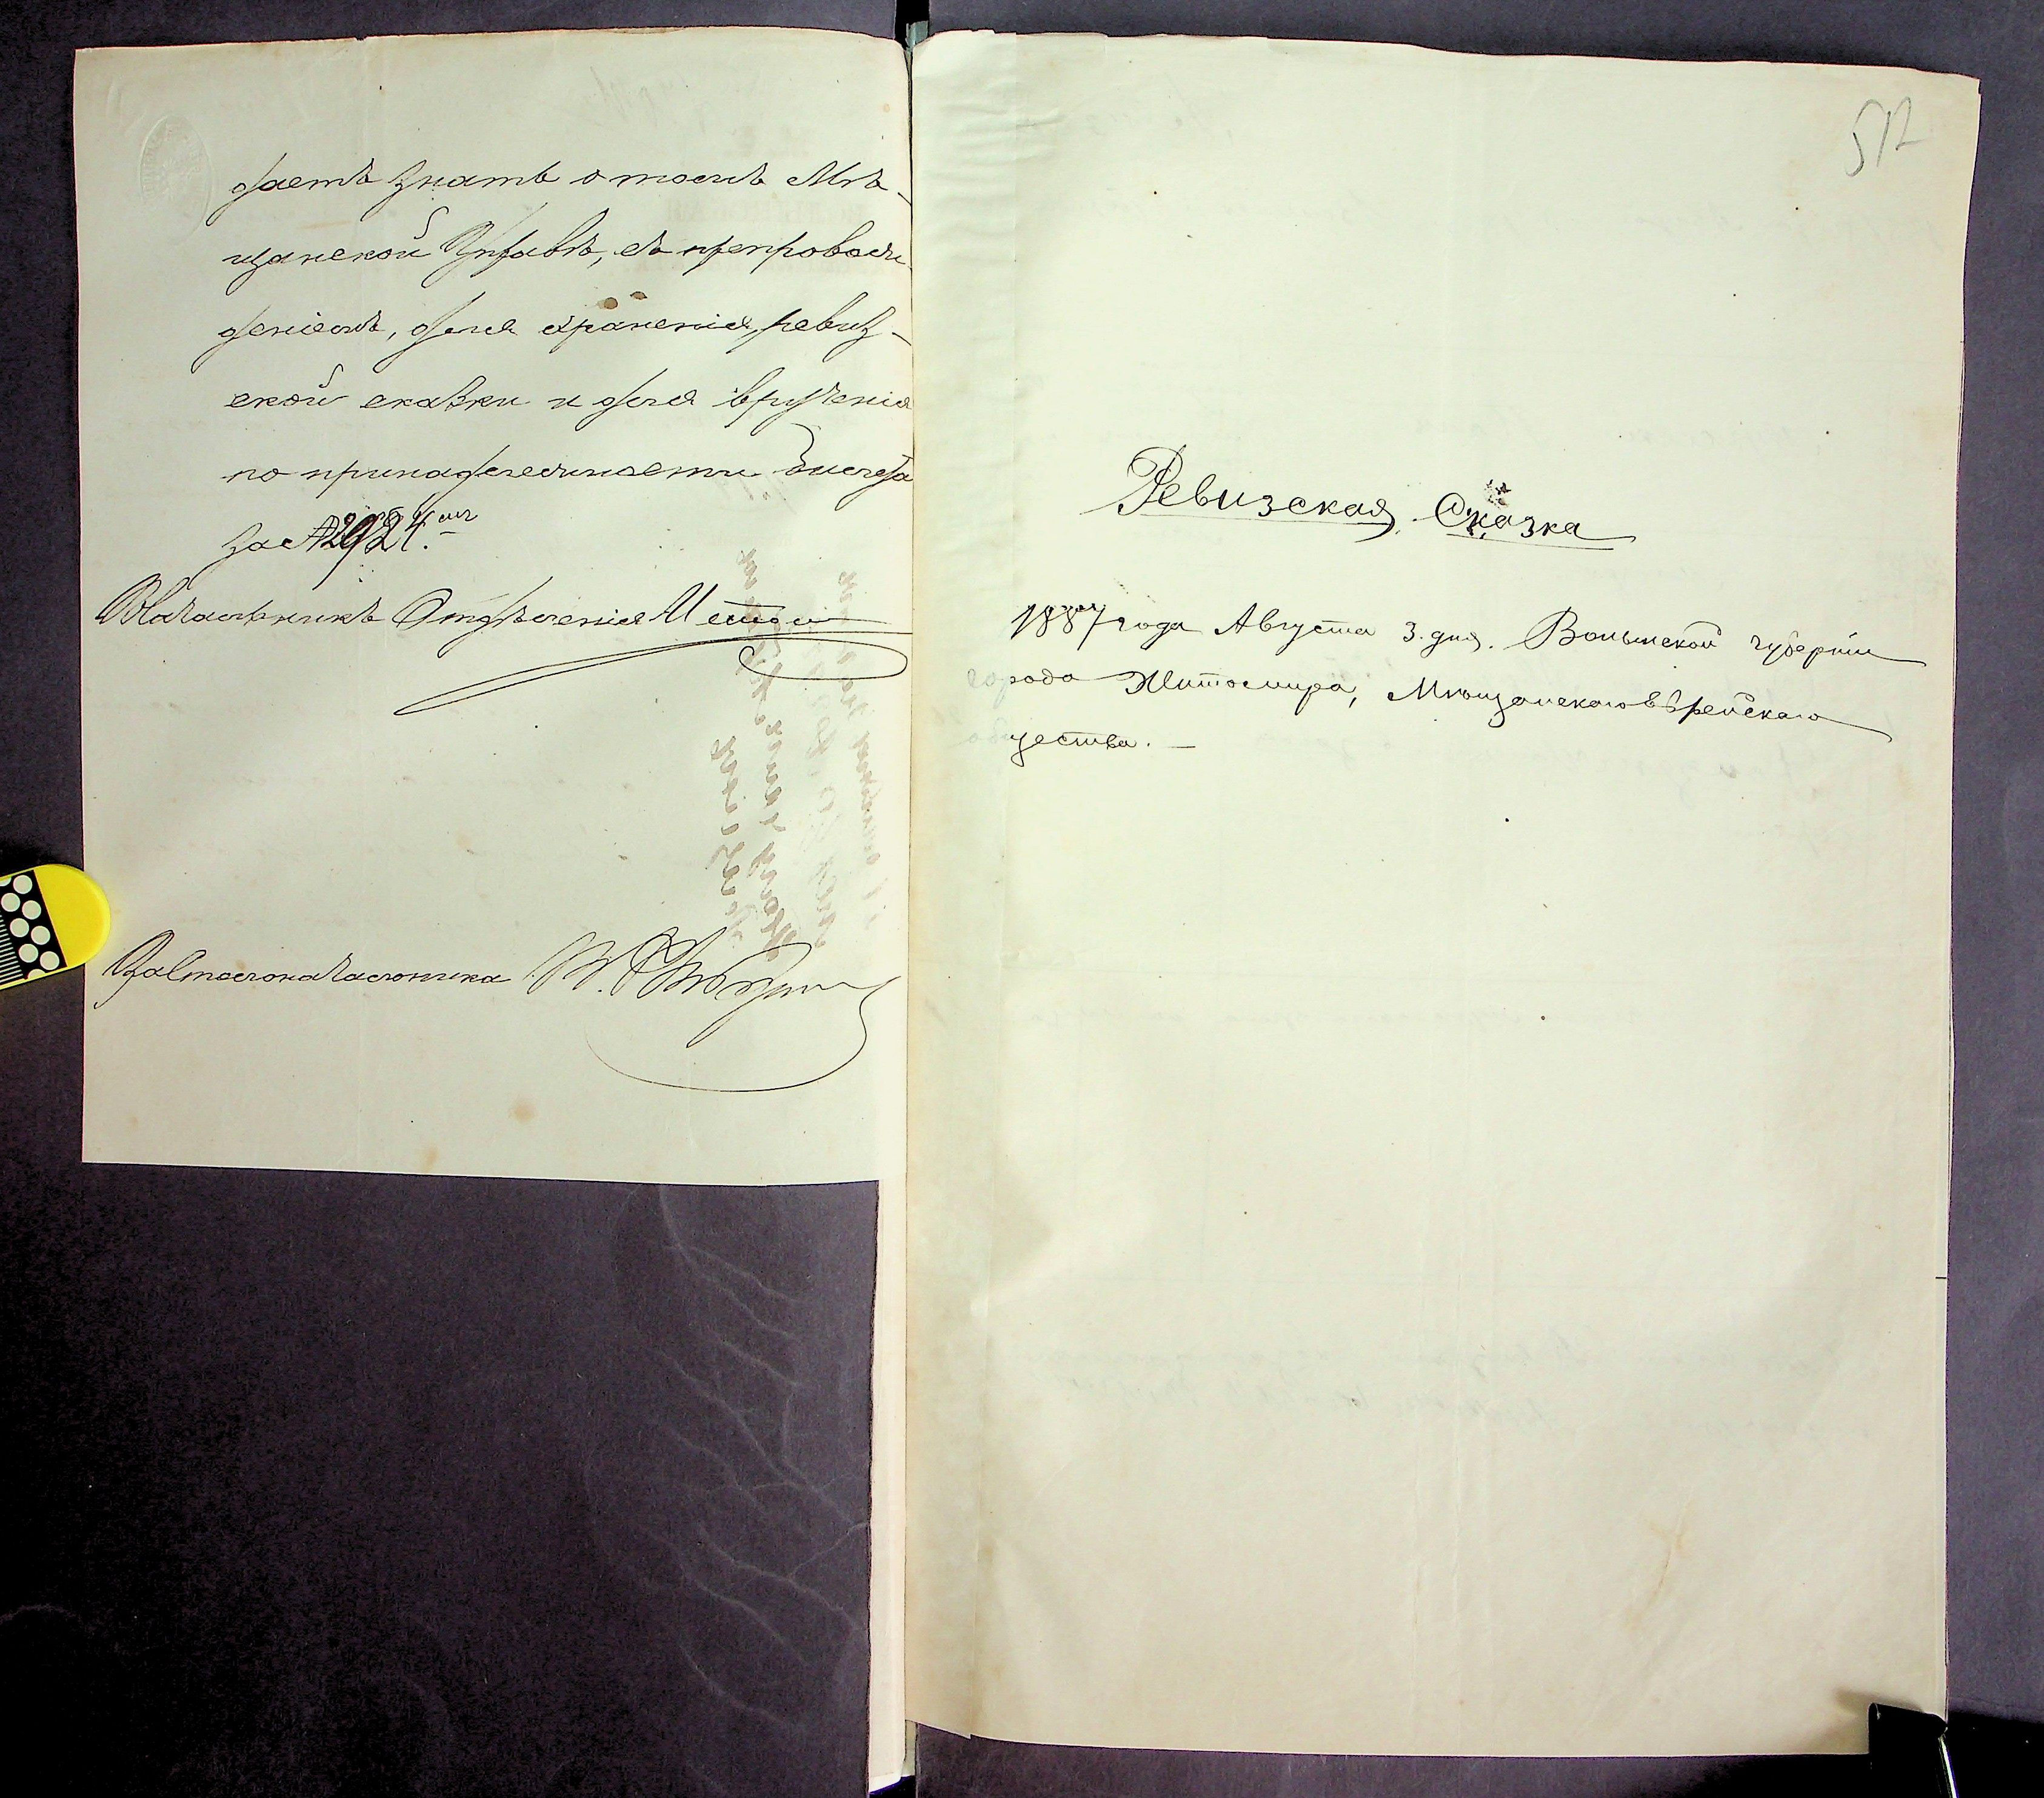 даетъ знать о томъ Мѣ-
щанской Управѣ, съ препровож-
деніемъ, для храненія, ревиз-
ской сказки и для врученія
по принадлежности билета
за № 2924.
Начальникъ Отдѣленія
Залтолоначальника
512
Ревизская Сказка
1887 года Августа 3 дня. Волынской губерніи
города Житомира, Мѣщанскаго Еврейскаго
щества. —